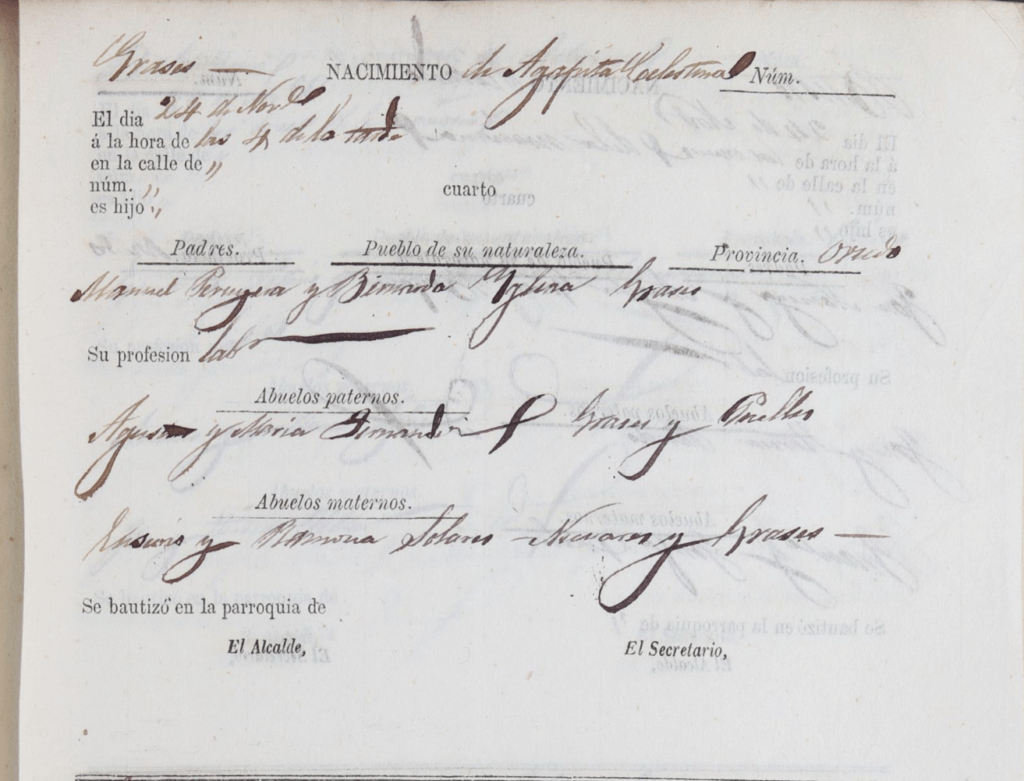 Grases — NACIMIENTO de Agapita Celestina Núm.
El dia 24 de Novbe
á la hora de las 4 de la tarde
en la calle de „
núm. „ cuarto
es hijo „
Padres. Pueblo de su naturaleza. Provincia. Oviedo
Manuel y Bernarda Yglesia Grases
Su profesion labr
Abuelos paternos.
Agustin y Maria Fernandez Grases y Puelles
Abuelos maternos.
y Ramona Solares — Nievares y Grases —
Se bautizó en la parroquia de
El Alcalde, El Secretario,